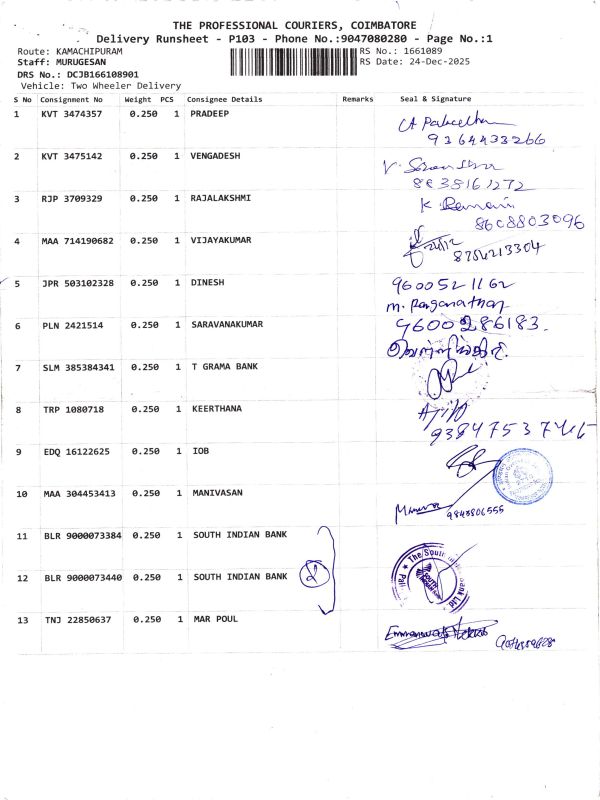 THE PROFESSIONAL COURIERS, COIMBATORE
Delivery Runsheet - P103 - Phone No.:9047080280 - Page No.:1
Route: KAMACHIPURAM
RS No.: 1661089
Staff: MURUGESAN
RS Date: 24-Dec-2025
DRS No.: DCJB166108901
Vehicle: Two Wheeler Delivery
S No Consignment No Weight PCS Consignee Details Remarks Seal & Signature
1 KVT 3474357 0.250 1 PRADEEP
9364433266
2 KVT 3475142 0.250 1 VENGADESH
V.
8838161272
3 RJP 3709329 0.250 1 RAJALAKSHMI
K
8608803096
4 MAA 714190682 0.250 1 VIJAYAKUMAR
24/12
8754213304
5 JPR 503102328 0.250 1 DINESH
9600521162
m. Ranganathan
6 PLN 2421514 0.250 1 SARAVANAKUMAR
9600286183.
7 SLM 385384341 0.250 1 T GRAMA BANK
8 TRP 1080718 0.250 1 KEERTHANA
9 EDQ 16122625 0.250 1 IOB
10 MAA 304453413 0.250 1 MANIVASAN
9843806555
11 BLR 9000073384 0.250 1 SOUTH INDIAN BANK
12 BLR 9000073440 0.250 1 SOUTH INDIAN BANK
2
13 TNJ 22850637 0.250 1 MAR POUL